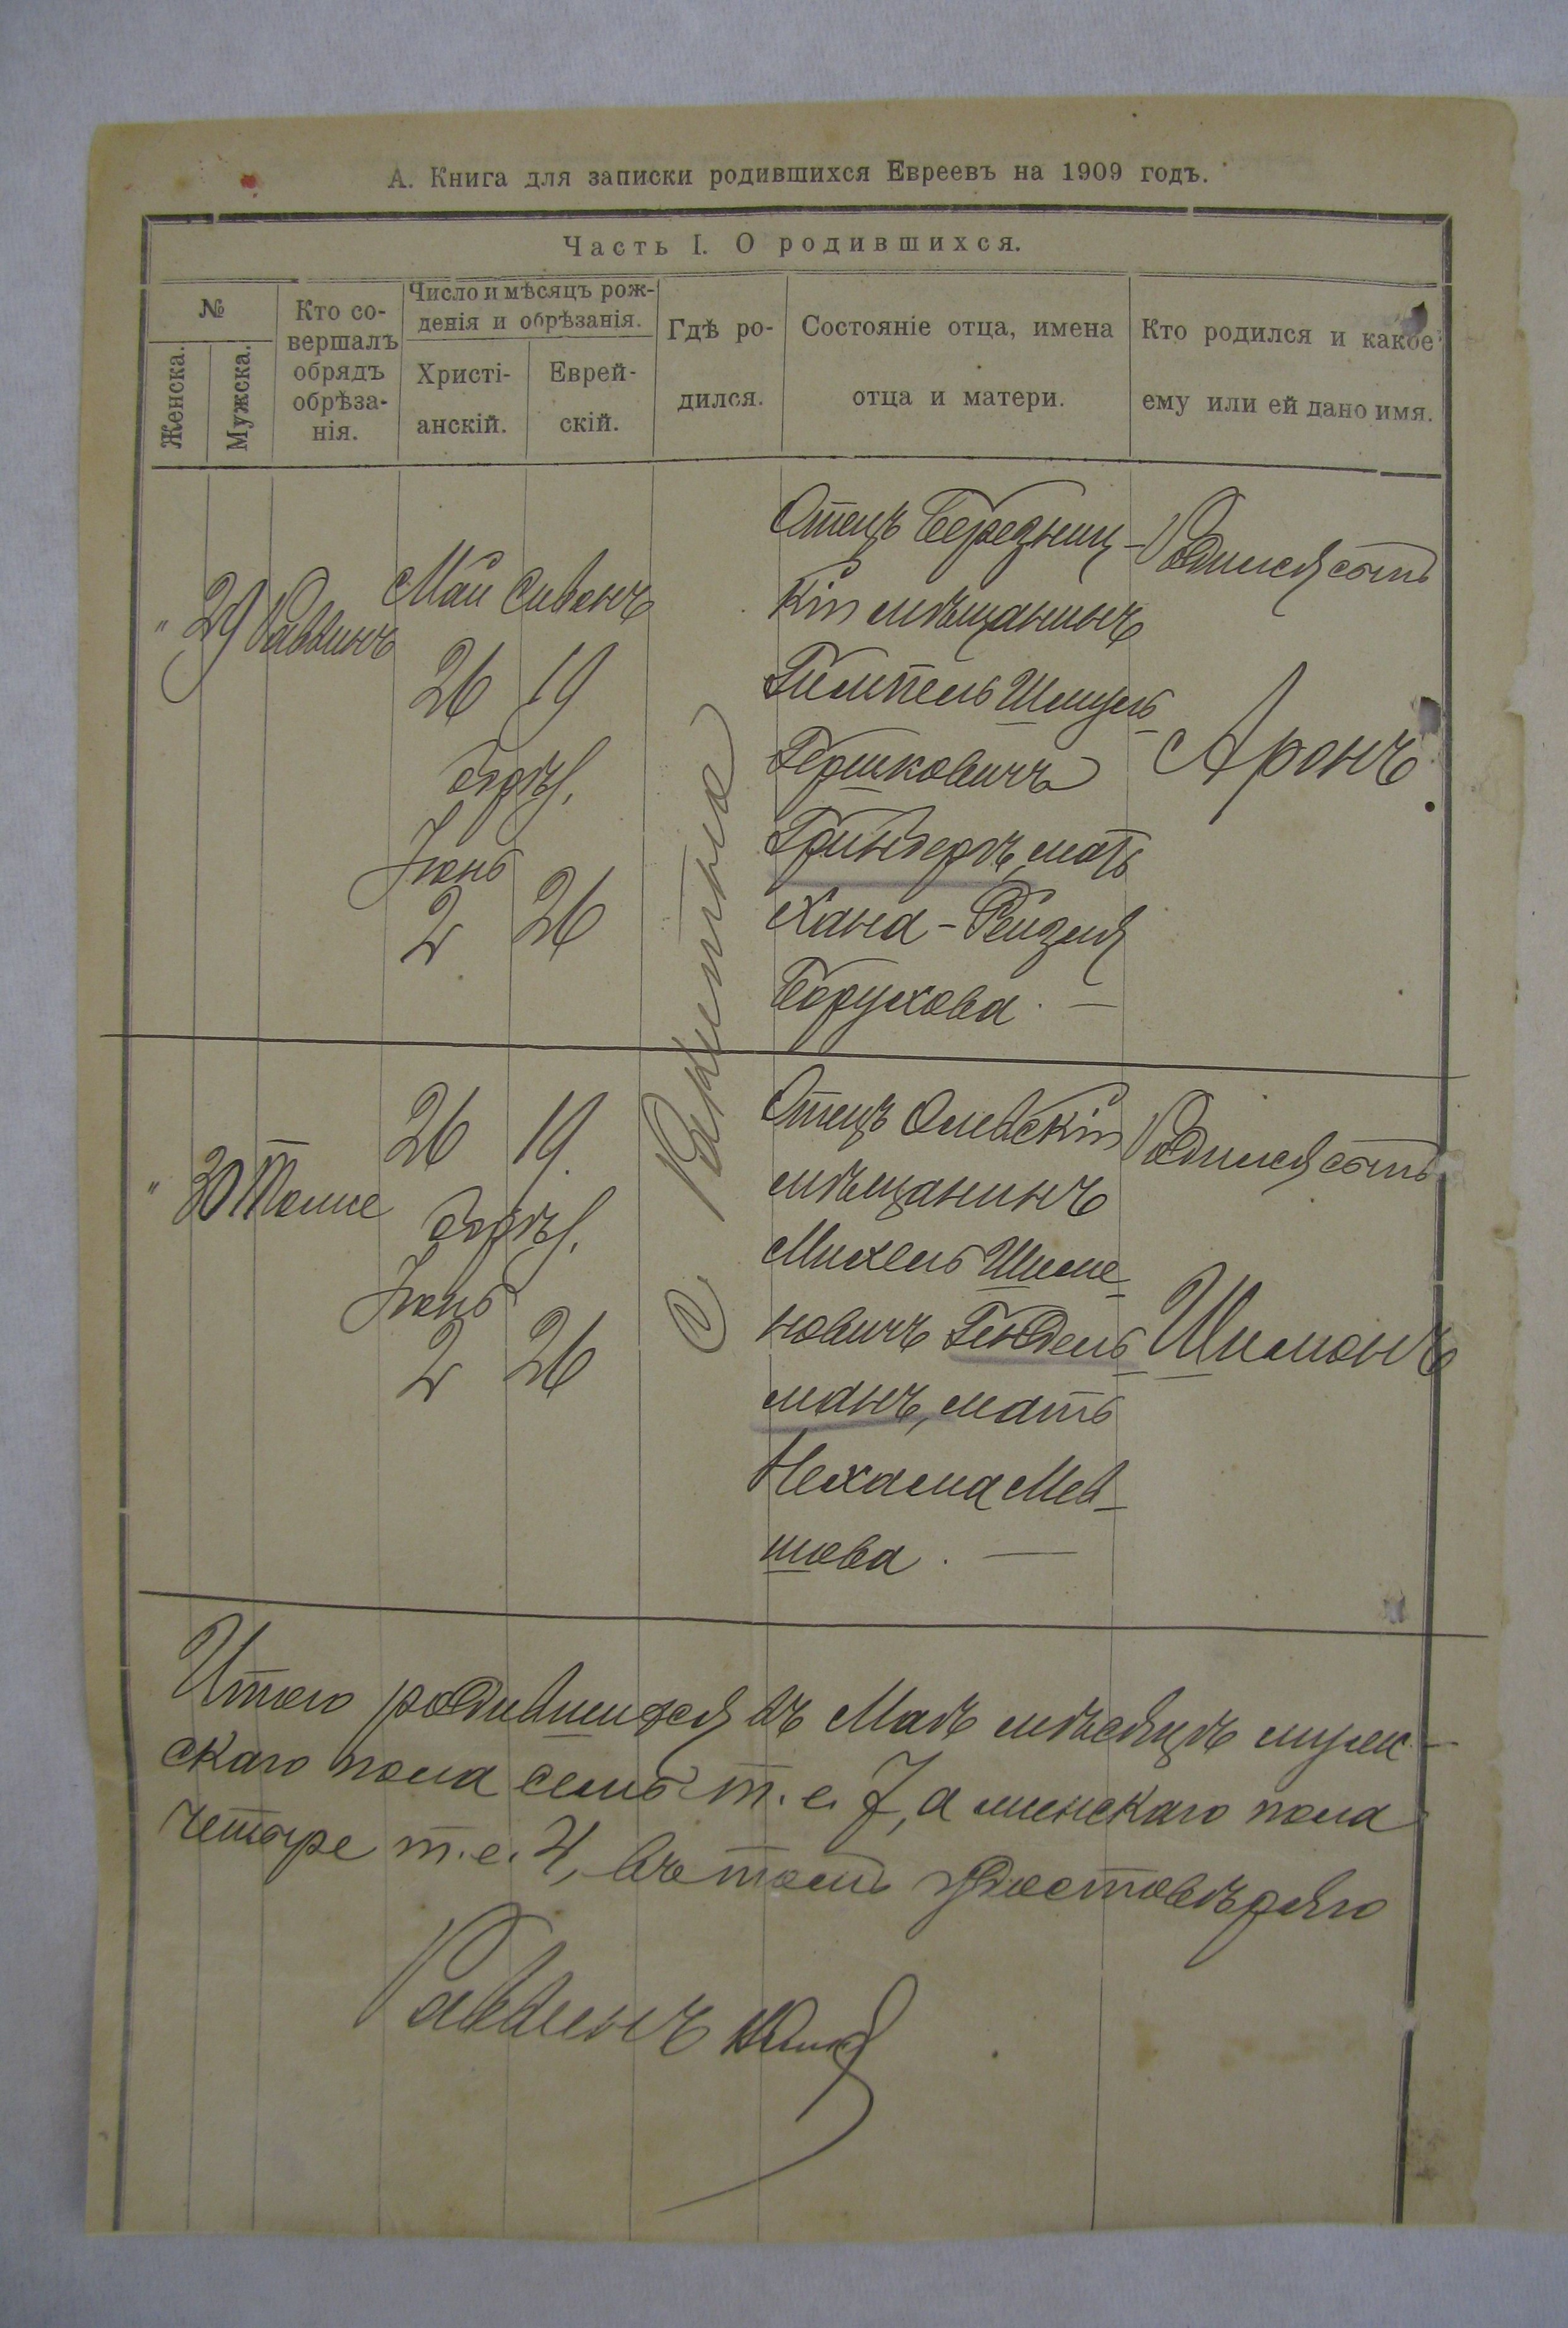 А. Книга для записки родившихся Евреевъ на 1909 годъ.
Часть I. О родившихся.
№
Женска.
Мужска.
Кто со-
вершалъ
обрядъ
обрѣза-
нія.
Число и мѣсяцъ рож-
денія и обрѣзанія.
Христі-
анскій.
Еврей-
скій.
Гдѣ ро-
дился.
Состояніе отца, имена
отца и матери.
Кто родился и какое
ему или ей дано имя.
" 29 Раввинъ
Май Сиванъ
26 19
обрѣз.
Іюнь
2 26
Отецъ Березниц-
кій мѣщанинъ
Гимпель Шмуль
Гершковичъ
Гринбергъ, мать
Хана-Рейзля
Борухова. —
Родился сынъ
Аронъ.
" 30 Тоже
26 19.
обрѣз.
Іюнь
2 26
Отецъ Олевскій
мѣщанинъ
Михель Шиме-
новичъ Гендель-
манъ, мать
Нехама Мев-
шова. —
Родился сынъ
Шимонъ
Итого родившихся въ Маѣ мѣсяцѣ муж-
скаго пола семь т. е. 7, а женскаго пола
четыре т. е. 4, въ томъ удостовѣряю
Раввинъ